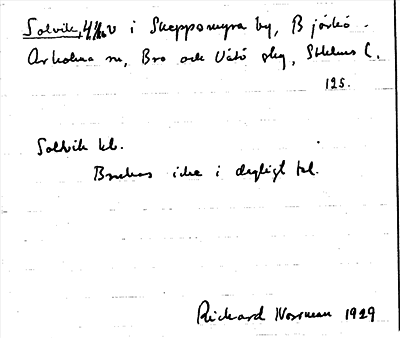 Solvik, 4/160 i Skeppsmyra by, Björkö-
Arholma sn, Bro och Vätö skg, Sthlms l.
125.
Soltvik hl.
Brukas icke i dagligt tal.
Rickard Norrman 1929